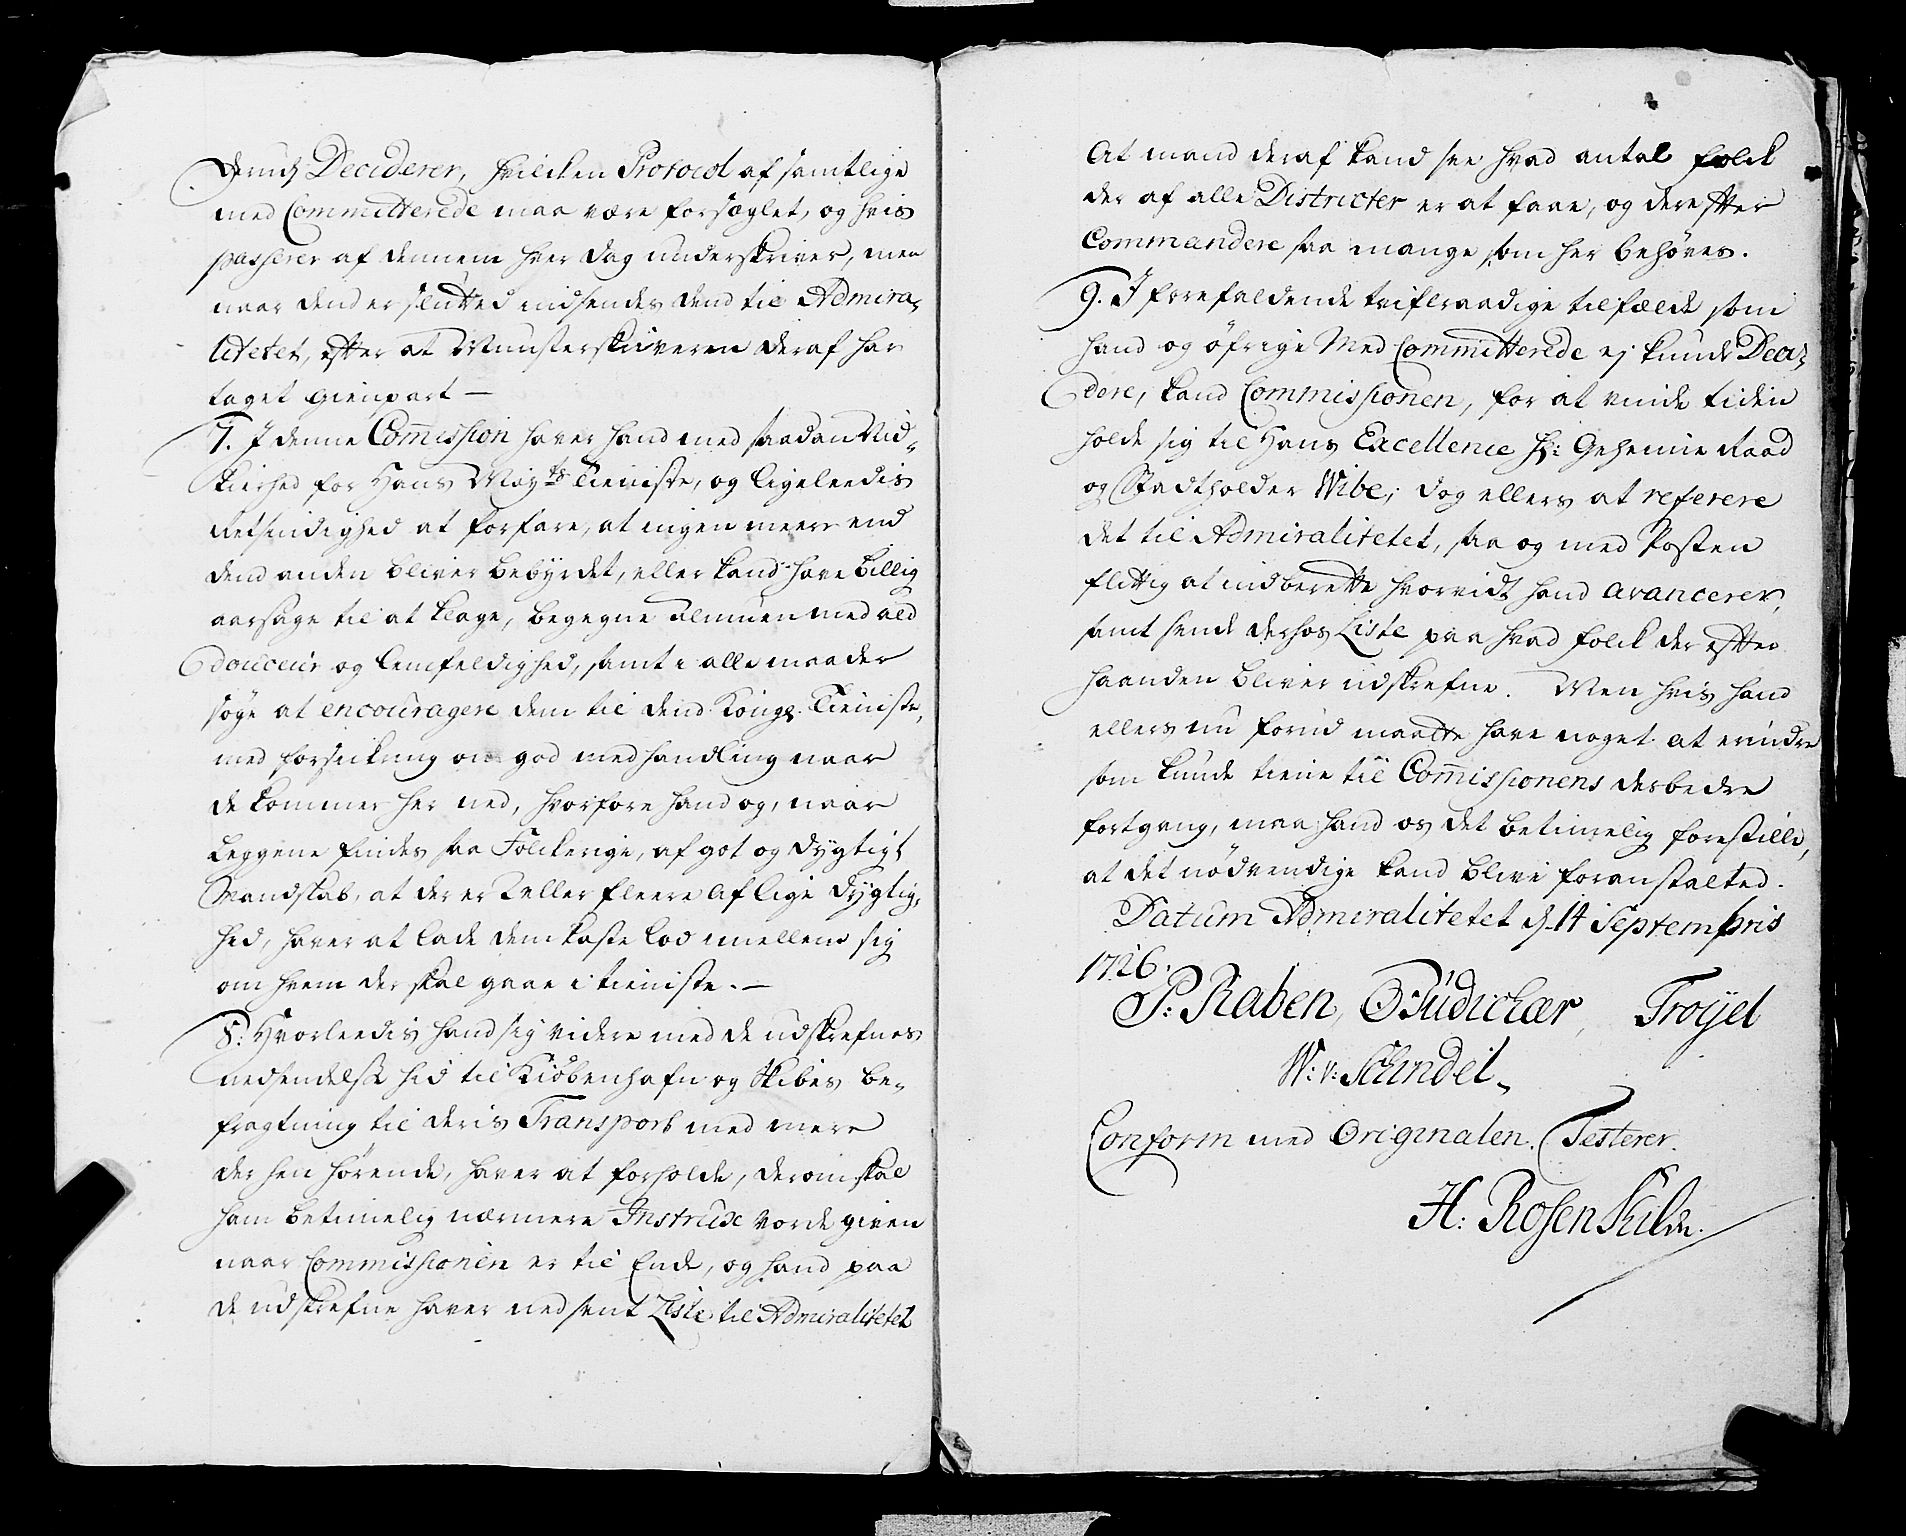 Deciderer, hvilcken Protocol af samtlige
med Committerede maa være forseglet, og hvis
passerer af dennem hver dag underskriver, men
naar dend er slutted indsendes dend til Admira-
litetet, efter at Mønsterskriveren deraf har
taget gienpart –
7. I denne Commission haver hand med saadan Nid-
kierhed for Hans May:ts Tieniste, og ligeleedis
Retsindighed at forfare, at ingen meere end
dend anden bliver bebyrdet, eller kand have billig
aarsage til at klage, begegne Almuen med ald
douceur og lemfeldighed, samt i alle maader
søge at encouragere dem til dend Kongl. Tieniste,
med forsickring om god medhandling naar
de kommer her ned, hvorfore hand og, naar
Leggene findes saa Folckerige, af got og dygtigt
Mandskab, at der er 2 eller fleere af lige dygtig-
hed, haver at lade dem kaste lod imellem sig
om hvem der skal gaae i tieniste. –
8. Hvorleedis hand sig videre med de udskrefnes
nedsendelse hid til Kiøbenhafn og Skibes be-
fragtning til deris Transport med mere
der hen hørende, haver at forholde, derom skal
ham betimelig nærmere Instrux vorde given
naar Commissionen er til Ende, og hand paa
de udskrefne haver nedsent Liste til Admiralitetet
At mand deraf kand see hvad antal folck
der af alle Districter er at faae, og derefter
Commandere saa mange som her behøves.
9. I forefaldende tvifleraadige tilfælde som
hand og øfrige Med Committerede ej kunde Deci-
dere, kand Commissionen, for at vinde tiden
holde sig til Hans Excellence Hr: Geheime Raad
og Stadtholder Wibe; dog ellers at referere
det til Admiralitetet, saa og med Posten
flittig at indberette hvorvidt hand avancerer,
samt sende derhos Liste paa hvad folck der efter
haanden bliver udskrefne. Men hvis hand
ellers nu forud maatte have noget at erindre
som kunde tiene til Commissionens desbedre
fortgang, maa hand os det betimelig forestille,
at det nødvendige kand blive foranstalted.
Datum Admiralitetet d. 14 Septembris
1726.
P: Raben, O Judichær, Trojel
W: v: Schindel
Conform med Originalen Testerer.
H: Rosenskilde.